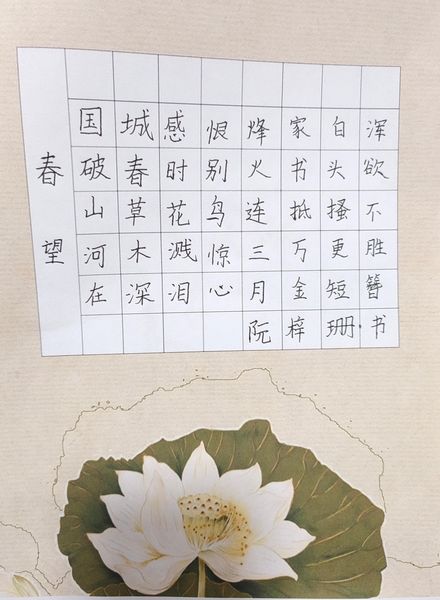 春望
国破山河在
城春草木深
感时花溅泪
恨别鸟惊心
烽火连三月
家书抵万金
白头搔更短
浑欲不胜簪
阮梓珊·书